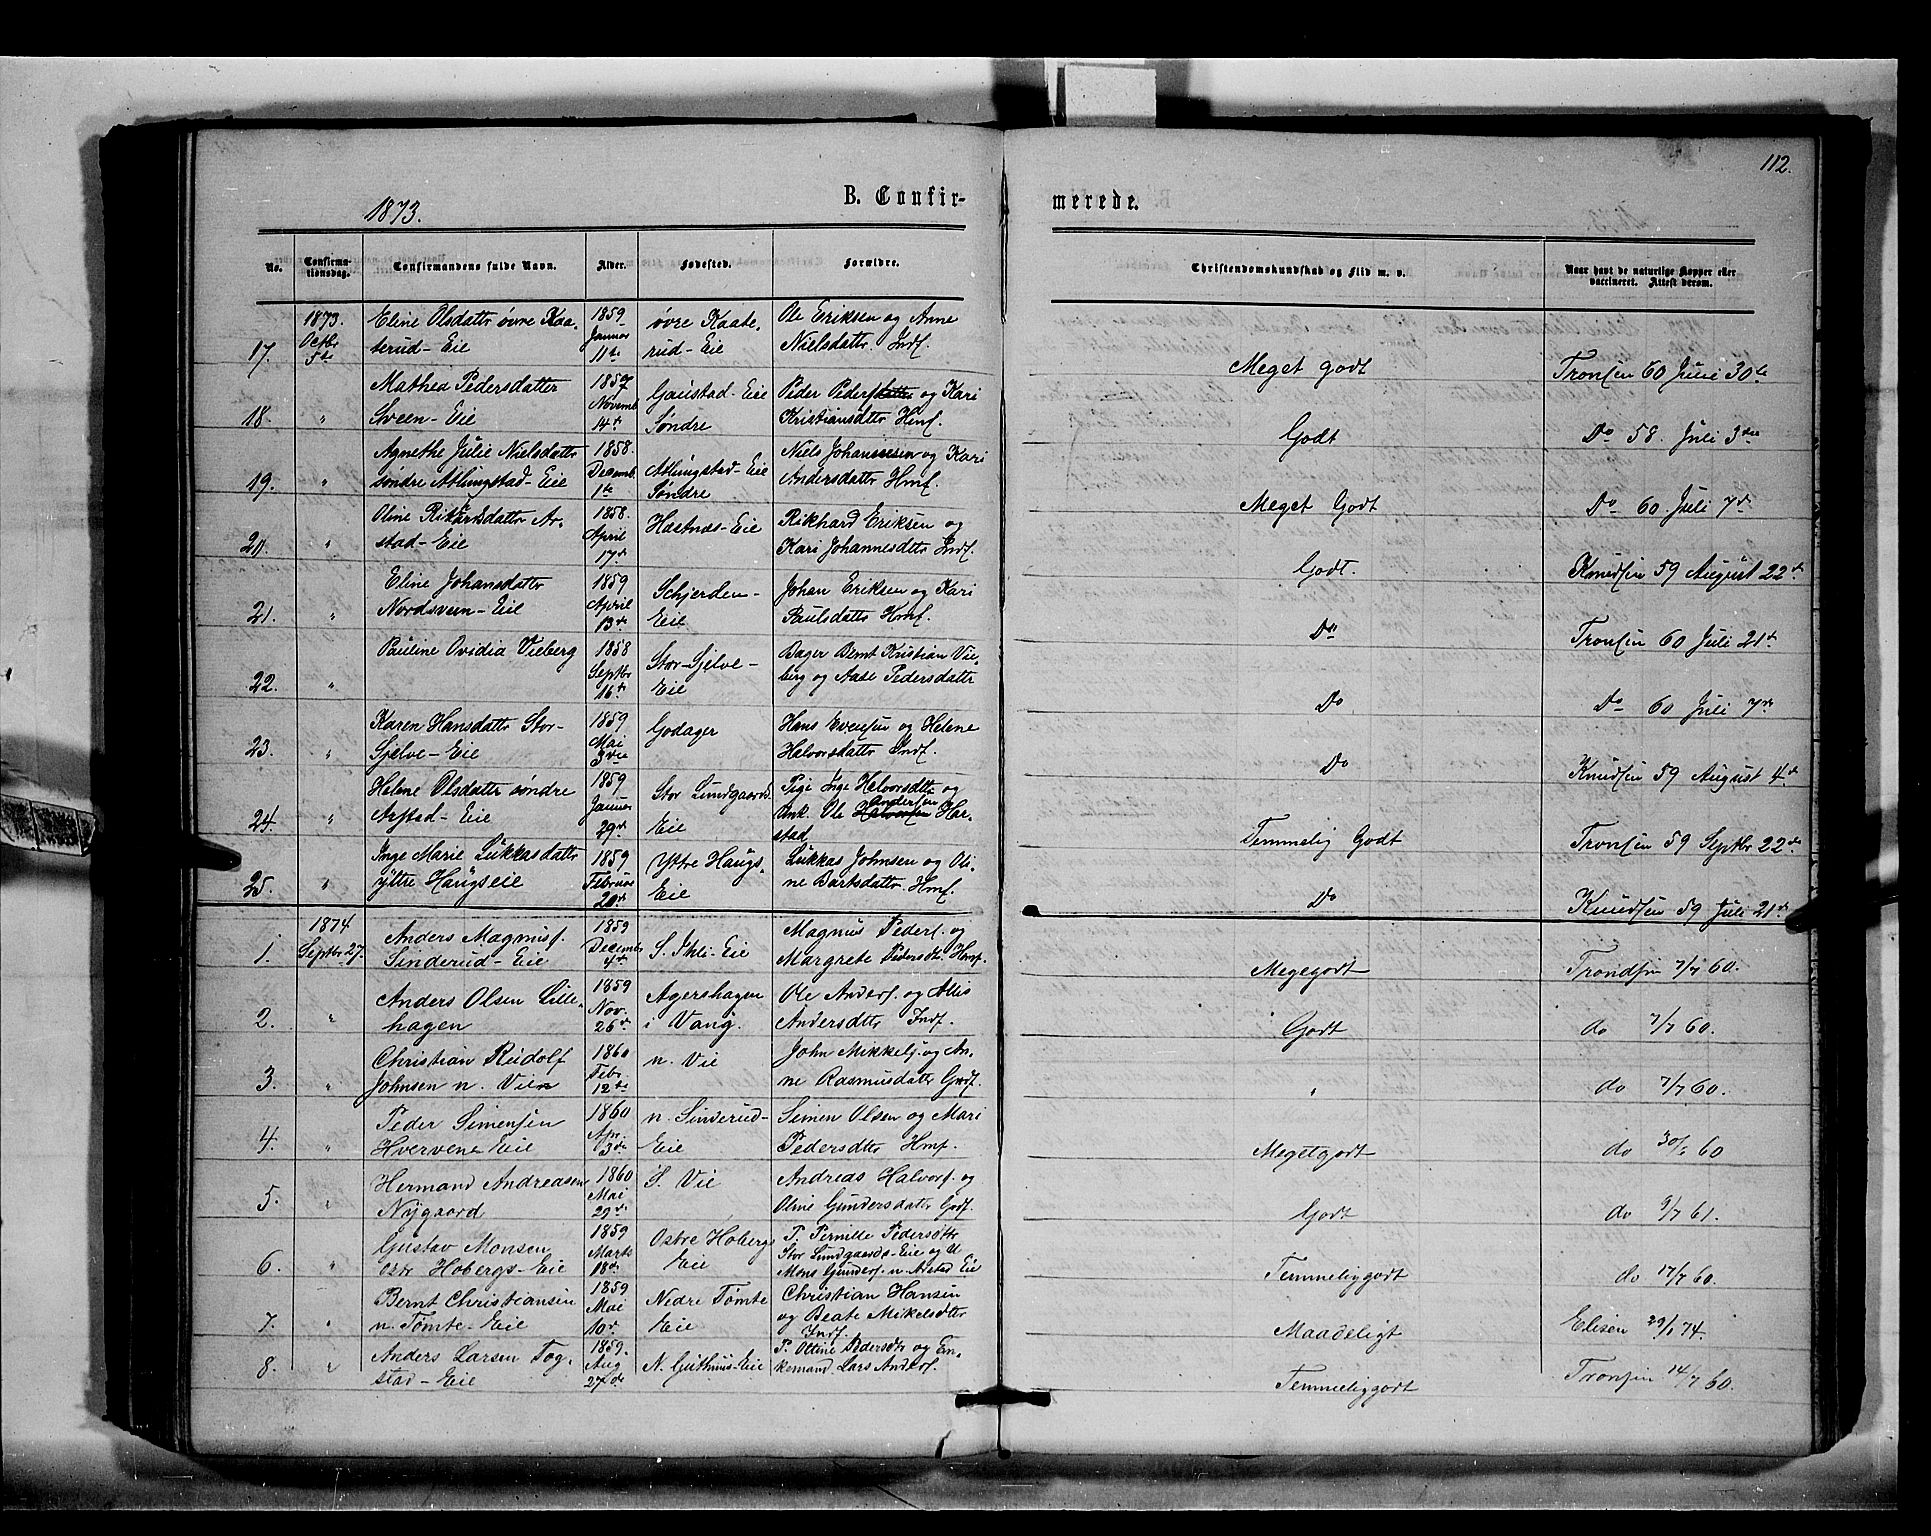 112.
B. Confirmerede.
1873.
No.
Confirmationsdag.
Confirmandens fulde Navn.
Alder.
Fødested.
Forældre.
Christendomskundskab og Flid m. v.
Naar havt de naturlige Kopper eller vaccineret. Attest derom.
17.
1873.
Octbr
5te
Eline Olsdattr øvre Kaa-
terud-Eie
1859
Januar
11te
øvre Kaate-
rud-Eie
Ole Eriksen og Anne
Nielsdattr. Indf.
Meget godt
Tronsen 60 Juli 30te
18.
"
Mathea Pedersdatter
Sveen-Eie
1857
Novemb.
14de
Gaustad-Eie
Søndre
Peder Peders og Kari
Kristiansdttr Hmf.
Godt
Do 58. Juli 3die
19.
"
Agnethe Julie Nielsdattr
søndre Atlungstad-Eie
1858.
Decemb.
1te
Atlungstad-Eie
Søndre
Niels Johannesen og Kari
Andersdattr Hmf.
Meget Godt
Do 60 Juli 7de
20.
"
Oline Rikardsdattr Ar-
stad-Eie
1858.
April
17de
Hastnæs-Eie
Rikhard Eriksen og
Kari Johannesdttr Indf.
Godt.
Knudsen 59 August 22de
21.
"
Eline Johansdattr
Nordsveen-Eie
1859
April
13de
Schjerden-
Eie
Johan Eriksen og Kari
Paulsdattr Hmf.
Do
Tronsen 60 Juli 21de
22.
"
Pauline Ovidia Vieberg
1858
Septbr
16de
Stor-Gjelve-
Eie
Bager Bernt Kristian Vie-
berg og Aase Pedersdattr
Do
Do 60 Juli 7de
23.
"
Karen Hansdattr Stor-
Gjelve-Eie
1859
Mai
3die
Godager
Hans Evensen og Helene
Halvorsdattr Indf.
Do
Knudsen 59 August 4de
24.
"
Helene Olsdattr søndre
Arstad-Eie
1859
Januar
29de
Stor Lundgaards
Eie
Pige Inge Halvorsdttr og
Unk. Ole Halvorsen Andersen Har-
stad
Temmelig Godt
Tronsen 59 Septbr 22de
25.
"
Inge Marie Lukkasdattr
Yttre Haugseie
1859
Februar
20de
Yttre Haugs-
Eie
Lukkas Johnsen og Oli-
ne Bartsdattr Hmf.
Do
Knudsen 59 Juli 21de
1.
1874
Septbr 27.
Anders Magnusf.
Sinderud-Eie
1859
Decembr
4de
S. Ihle-Eie
Magnus Pederf. og
Margrete Pedersdtr Hmf.
Megegodt
Trondsen 7/7 60.
2.
"
Anders Olsen Lille-
hagen
1859
Nov.
26de
Agershagen
i Vang.
Ole Andersf. og Alis
Andersdttr Indf.
Godt
do 7/7 60.
3.
"
Christian Rudolf
Johnsen n. Vien
1860
Febr.
12te
n. Vie
John Mikkelf. og An-
ne Rasmusdattr Grdf.
"
do 7/7 60.
4.
"
Peder Simensen
Hvervene Eie
1860
Apr.
3die
n. Sinderud-
Eie
Simen Olsen og Mari
Pedersdttr Hmf.
Megetgodt
do 30/ 60
5.
"
Hermand Andreasen
Nygaard
1860
Mai
29de
S. Vie
Andreas Halvorf. og
Oline Gundersdattr Grdf.
Godt
do 9/7 61.
6.
"
Gustav Monsen
østr Hobergs-Eie
1859
Marts
18de
Østre Hobergs
Eie
P. Pernille Pedersdttr
Stor Lundgaards-Eie og U
Mons Gunderf. n. Arstad Eie
Temmeliggodt
do 17/7 60.
7.
"
Bernt Christiansen
n. Tømte-Eie
1859
Mai
10de
Nedre Tømte
Eie
Christian Hansen
og Beate Mikelsdttr
Indf.
Maadeligt
Elisen 29/1 74.
8.
"
Anders Larsen Tog-
stad-Eie
1859.
Aug
27de
N. Guthuus-Eie
P. Oltine Pedersdtr og En-
kemand Lars Andersf.
Temmeliggodt
Tronsen 14/7 60.